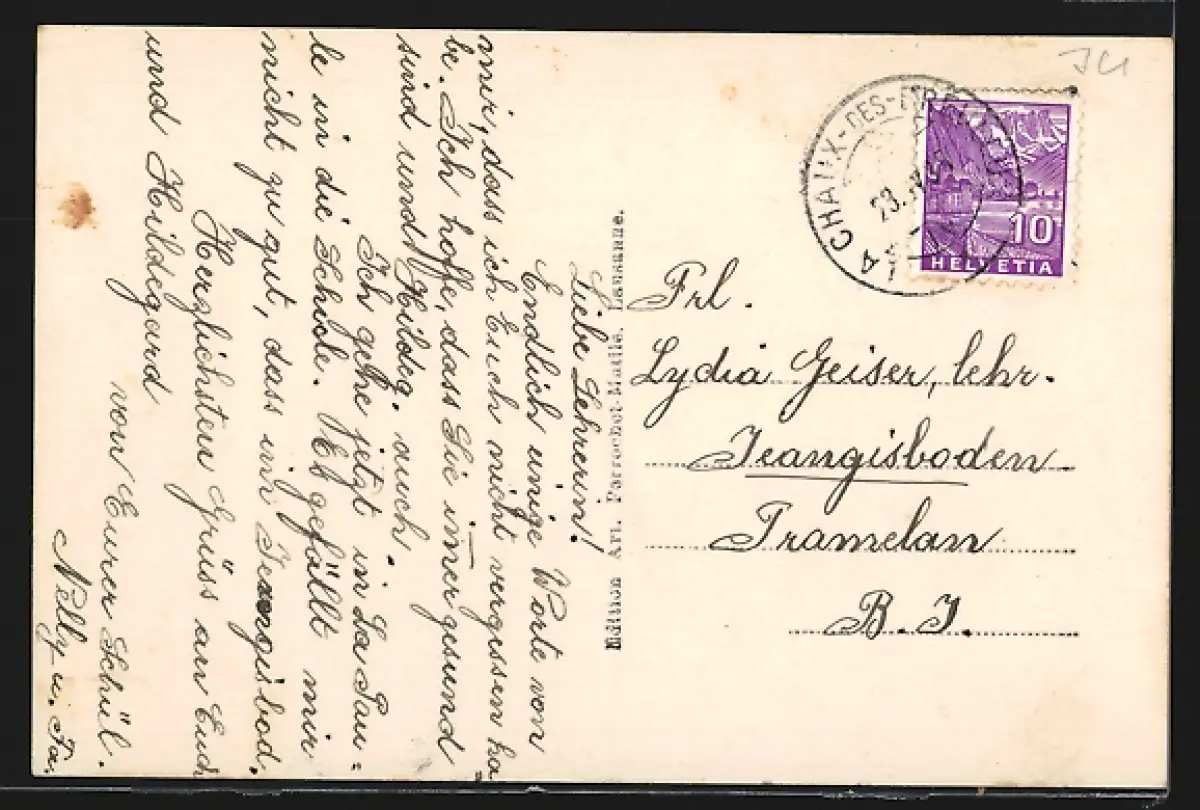 Liebe Lehrerin!
Endlich einige Worte von
mir, dass ich Euch nicht vergessen ha-
be. Ich hoffe, dass Sie im̄er gesund
sind und Hildeg. auch.
Ich gehe jetzt in La Pau=
le in die Schule. Es gefällt mir
nicht zu gut, dass in Jeangisbod.
Herzlichsten Grüss an Euch
und Hildegard
von Eurer Schül.
Nelly u. Fa.
Edition Art. Perrochet-Matile, Lausanne.
JU
LA CHAUX-DES-
23.
10
HELVETIA
Frl.
Lydia Geiser, lehr.
Jeangisboden
Tramelan
B. J.